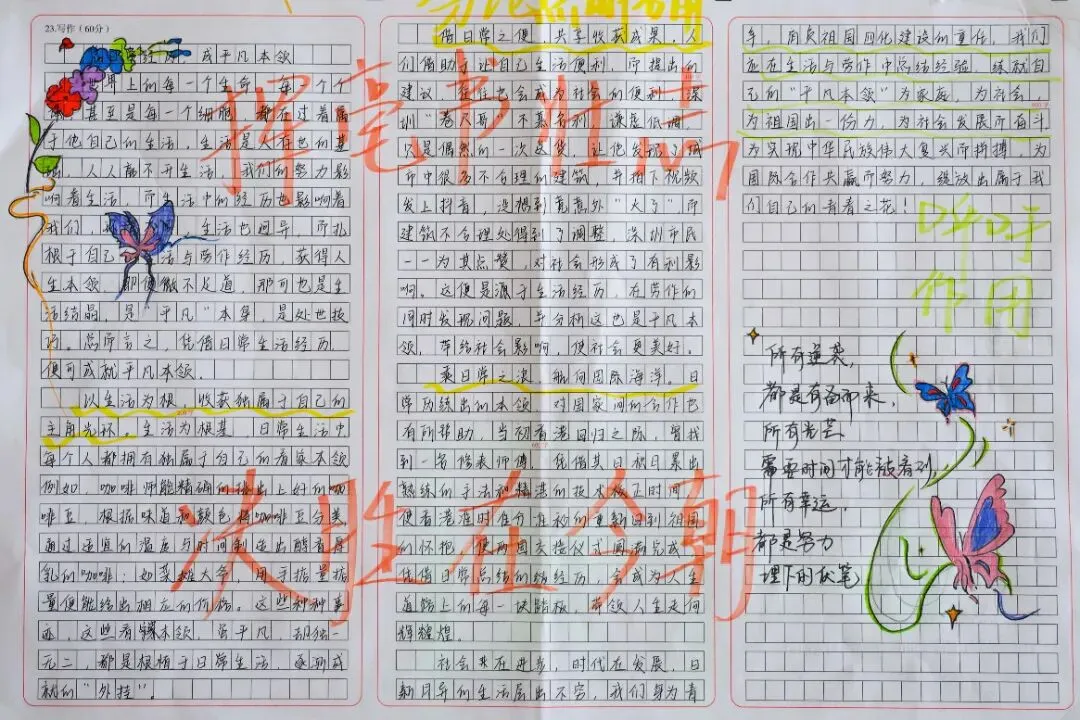 23.写作（60分）
成平凡本领
世界上的每一个生命，每一个个
甚至是每一个细胞，都在过着属
于他自己的生活，生活是人存在的基
人人离不开生活，我们的努力影
响着生活，而生活中的经历也影响着
我们，
生活也同导，而扎
根于自己
活与劳作经历，获得人
生本领，即便微不足道，那可也是生
活结晶，是“平凡”本事，是处世技
巧。总而言之，凭借日常生活经历
便可成就平凡本领.
以生活为根，收获独属于自己的
主角光环。生活为根基，日常生活中
每个人都拥有独属于自己的看家本领
例如，咖啡师能精确的
出上好的咖
啡豆，根据味道和颜色将咖啡豆分类
通过适宜的温度与时间制
出醇香厚
乳的咖啡；如菜摊大爷，用手掂量掂
量便能给出相应的价格。这些种种事
迹，这些看家本领，虽平凡，却独一
元二，都是根植于日常生活，逐渐成
就的“外挂”。
借日常之便，共享收获成果，人
们借助于让自己生活便利，而提出的
建议，往往也会成为社会的便利，深
圳“卷尺哥”不慕名利，谦虚低调，
只是偶然的一次送货，让他发现了城
市中很多不合理的建筑，并拍下视频
发上抖音，没想到竟意外“火了”而
建筑不合理处得到了调整，深圳市民
一一为其点赞，对社会形成了有利影
响。这便是源于生活经历，在劳作的
同时发现问题，并分析这也是平凡本
领，带给社会影响，使社会更美好。
乘日常之浪，航向国际海洋。日
常历练出的本领，对国家间的合作也
有所帮助，当初香港回归之际，曾找
到一名修表师傅，凭借其日积日累出
熟练的手法和精湛的技术校正时间，
使香港准时准分准秒的重新回到祖国
的怀抱，使两国交接仪式圆满完成
凭借日常总结的
经历，会成为人生
道路上的每一块踏板，带领人生走向
辉辉煌。
社会共在进步，时代在发展，日
新月异的生活层出不穷，我们身为青
年，肩负祖国四化建设的重任，我们
应在生活与劳作中总结经验，练就自
己的“平凡本领”为家庭，为社会，
为祖国出一份力，为社会发展所奋斗
为实现中华民族伟大复兴而拼搏，为
国际合作共赢而努力，绽放出属于我
们自己的青春之花！
挥毫书壮志
决胜在今朝
作团
所有逆袭，
都是有备而来，
所有光芒，
需要时间才能被看到，
所有幸运，
都是努力
埋下的伏笔